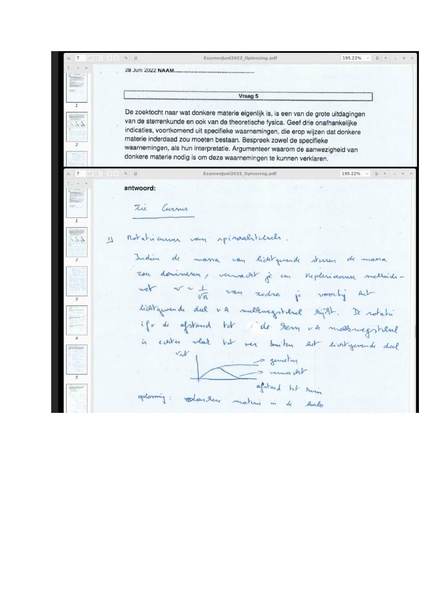 7
Examenjuni2022_Oplossing.pdf
195.22%
28 Juni 2022 NAAM
Vraag 5
De zoektocht naar wat donkere materie eigenlijk is, is een van de grote uitdagingen
van de sterrenkunde en ook van de theoretische fysica. Geef drie onafhankelijke
indicaties, voortkomend uit specifieke waarnemingen, die erop wijzen dat donkere
materie inderdaad zou moeten bestaan. Bespreek zowel de specifieke
waarnemingen, als hun interpretatie. Argumenteer waarom de aanwezigheid van
donkere materie nodig is om deze waarnemingen te kunnen verklaren.
1
2
7
Examenjuni2022_Oplossing.pdf
195.22%
antwoord:
Zie Cursus
1) Rotatiecurves van spiraalstelsels.
Indien de massa van lichtgevende sterren de massa
zou domineren, verwacht je een Kepleriaanse snelheids-
wet v ~ 1/√R van zodra je voorbij het
lichtgevende deel v/h melkwegstelsel kijkt. De rotatie
ifv de afstand tot de kern v/h melkwegstelsel
is echter vlak tot ver buiten het lichtgevende deel
v_rot
gemeten
verwacht
afstand tot kern
oplossing: donkere materie in de halo
1
2
3
4
5